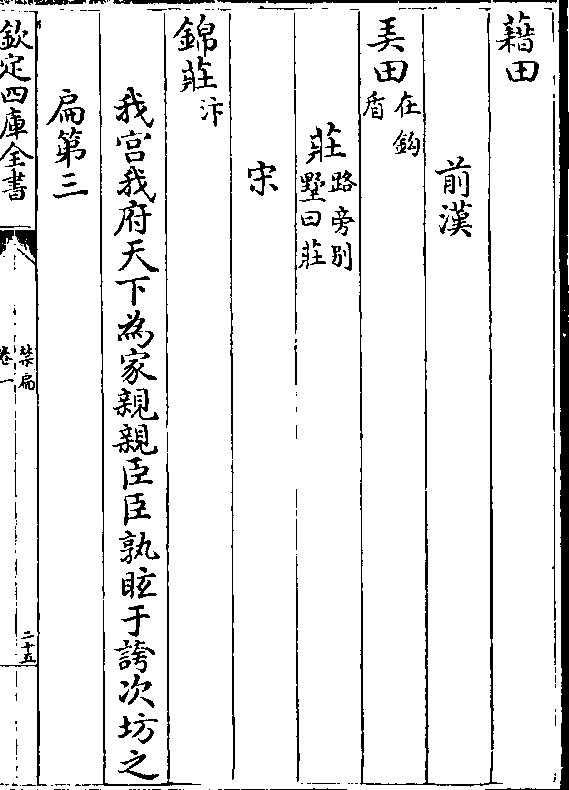 藉田
前漢
弄田在鈎盾
莊路旁別墅曰莊
宋
錦莊汴
我宫我府天下為家親親臣臣孰眩于誇次坊之
扁第三
欽定四庫全書
禁扁
卷一
二十五